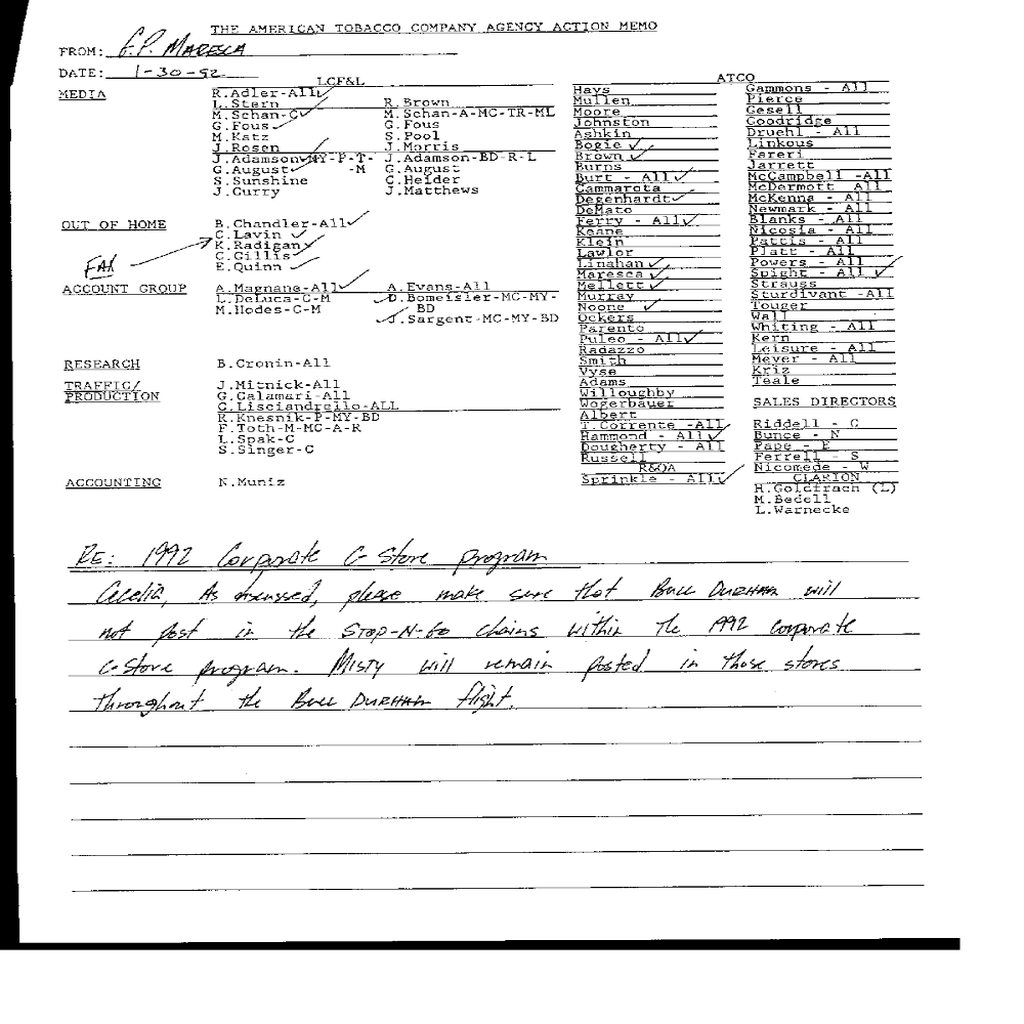 THE AMERICAN TOBACCO COMPANY AGENCY ACTION MEMO
FROM: G.P. MARESCA
DATE: 1-30-92
LCF&L
MEDIA
R.Adler-All
L.Stern R.Brown
M.Schan-C M.Schan-A-MC-TR-ML
G.Fous G.Fous
M.Katz S.Pool
J.Rosen J.Morris
J.Adamson-MY-P-T- J.Adamson-BD-R-L
G.August -M G.August
S.Sunshine C.Heider
J.Curry J.Matthews
OUT OF HOME B.Chandler-All
C.Lavin
K.Radigan
C.Gillis
FAX E.Quinn
ACCOUNT GROUP A.Magnane-All A.Evans-All
L.DeLuca-C-M D.Bomeisler-MC-MY-
M.Hodes-C-M BD
J.Sargent-MC-MY-BD
RESEARCH B.Cronin-All
TRAFFIC/ J.Mitnick-All
PRODUCTION G.Calamari-All
C.Lisciandrello-ALL
R.Knesnik-P-MY-BD
F.Toth-M-MC-A-R
L.Spak-C
S.Singer-C
ACCOUNTING N.Muniz
ATCO
Hays
Mullen
Moore
Johnston
Ashkin
Bogie
Brown
Burns
Burt - All
Cammarota
Degenhardt
DeMato
Ferry - All
Keane
Klein
Lawlor
Linahan
Maresca
Mellett
Murray
Noone
Ockers
Parento
Puleo - All
Radazzo
Smith
Vyse
Adams
Willoughby
Wogerbauer
Albert
T.Corrente -All
Hammond - All
Dougherty - All
Russell
R&QA
Sprinkle - All
Gammons - All
Pierce
Gesell
Goodridge
Druehl - All
Linkous
Fareri
Jarrett
McCampbell -All
McDermott All
McKenna - All
Newmark - All
Blanks - All
Nicosia - All
Pattis - All
Platt - All
Powers - All
Spight - All
Strauss
Sturdivant -All
Touger
Wall
Whiting - All
Kern
Leisure - All
Meyer - All
Kriz
Teale
SALES DIRECTORS
Riddell - C
Bunce - N
Pape - E
Ferrell - S
Nicomede - W
CLARION
H.Goldfrach (L)
M.Bedell
L.Warnecke
RE: 1992 Corporate C-Store program
Cecelia, As discussed, please make sure that BULL DURHAM will
not post in the STOP-N-GO chains within the 1992 corporate
C-Store program. MISTY will remain posted in those stores
throughout the BULL DURHAM flight.